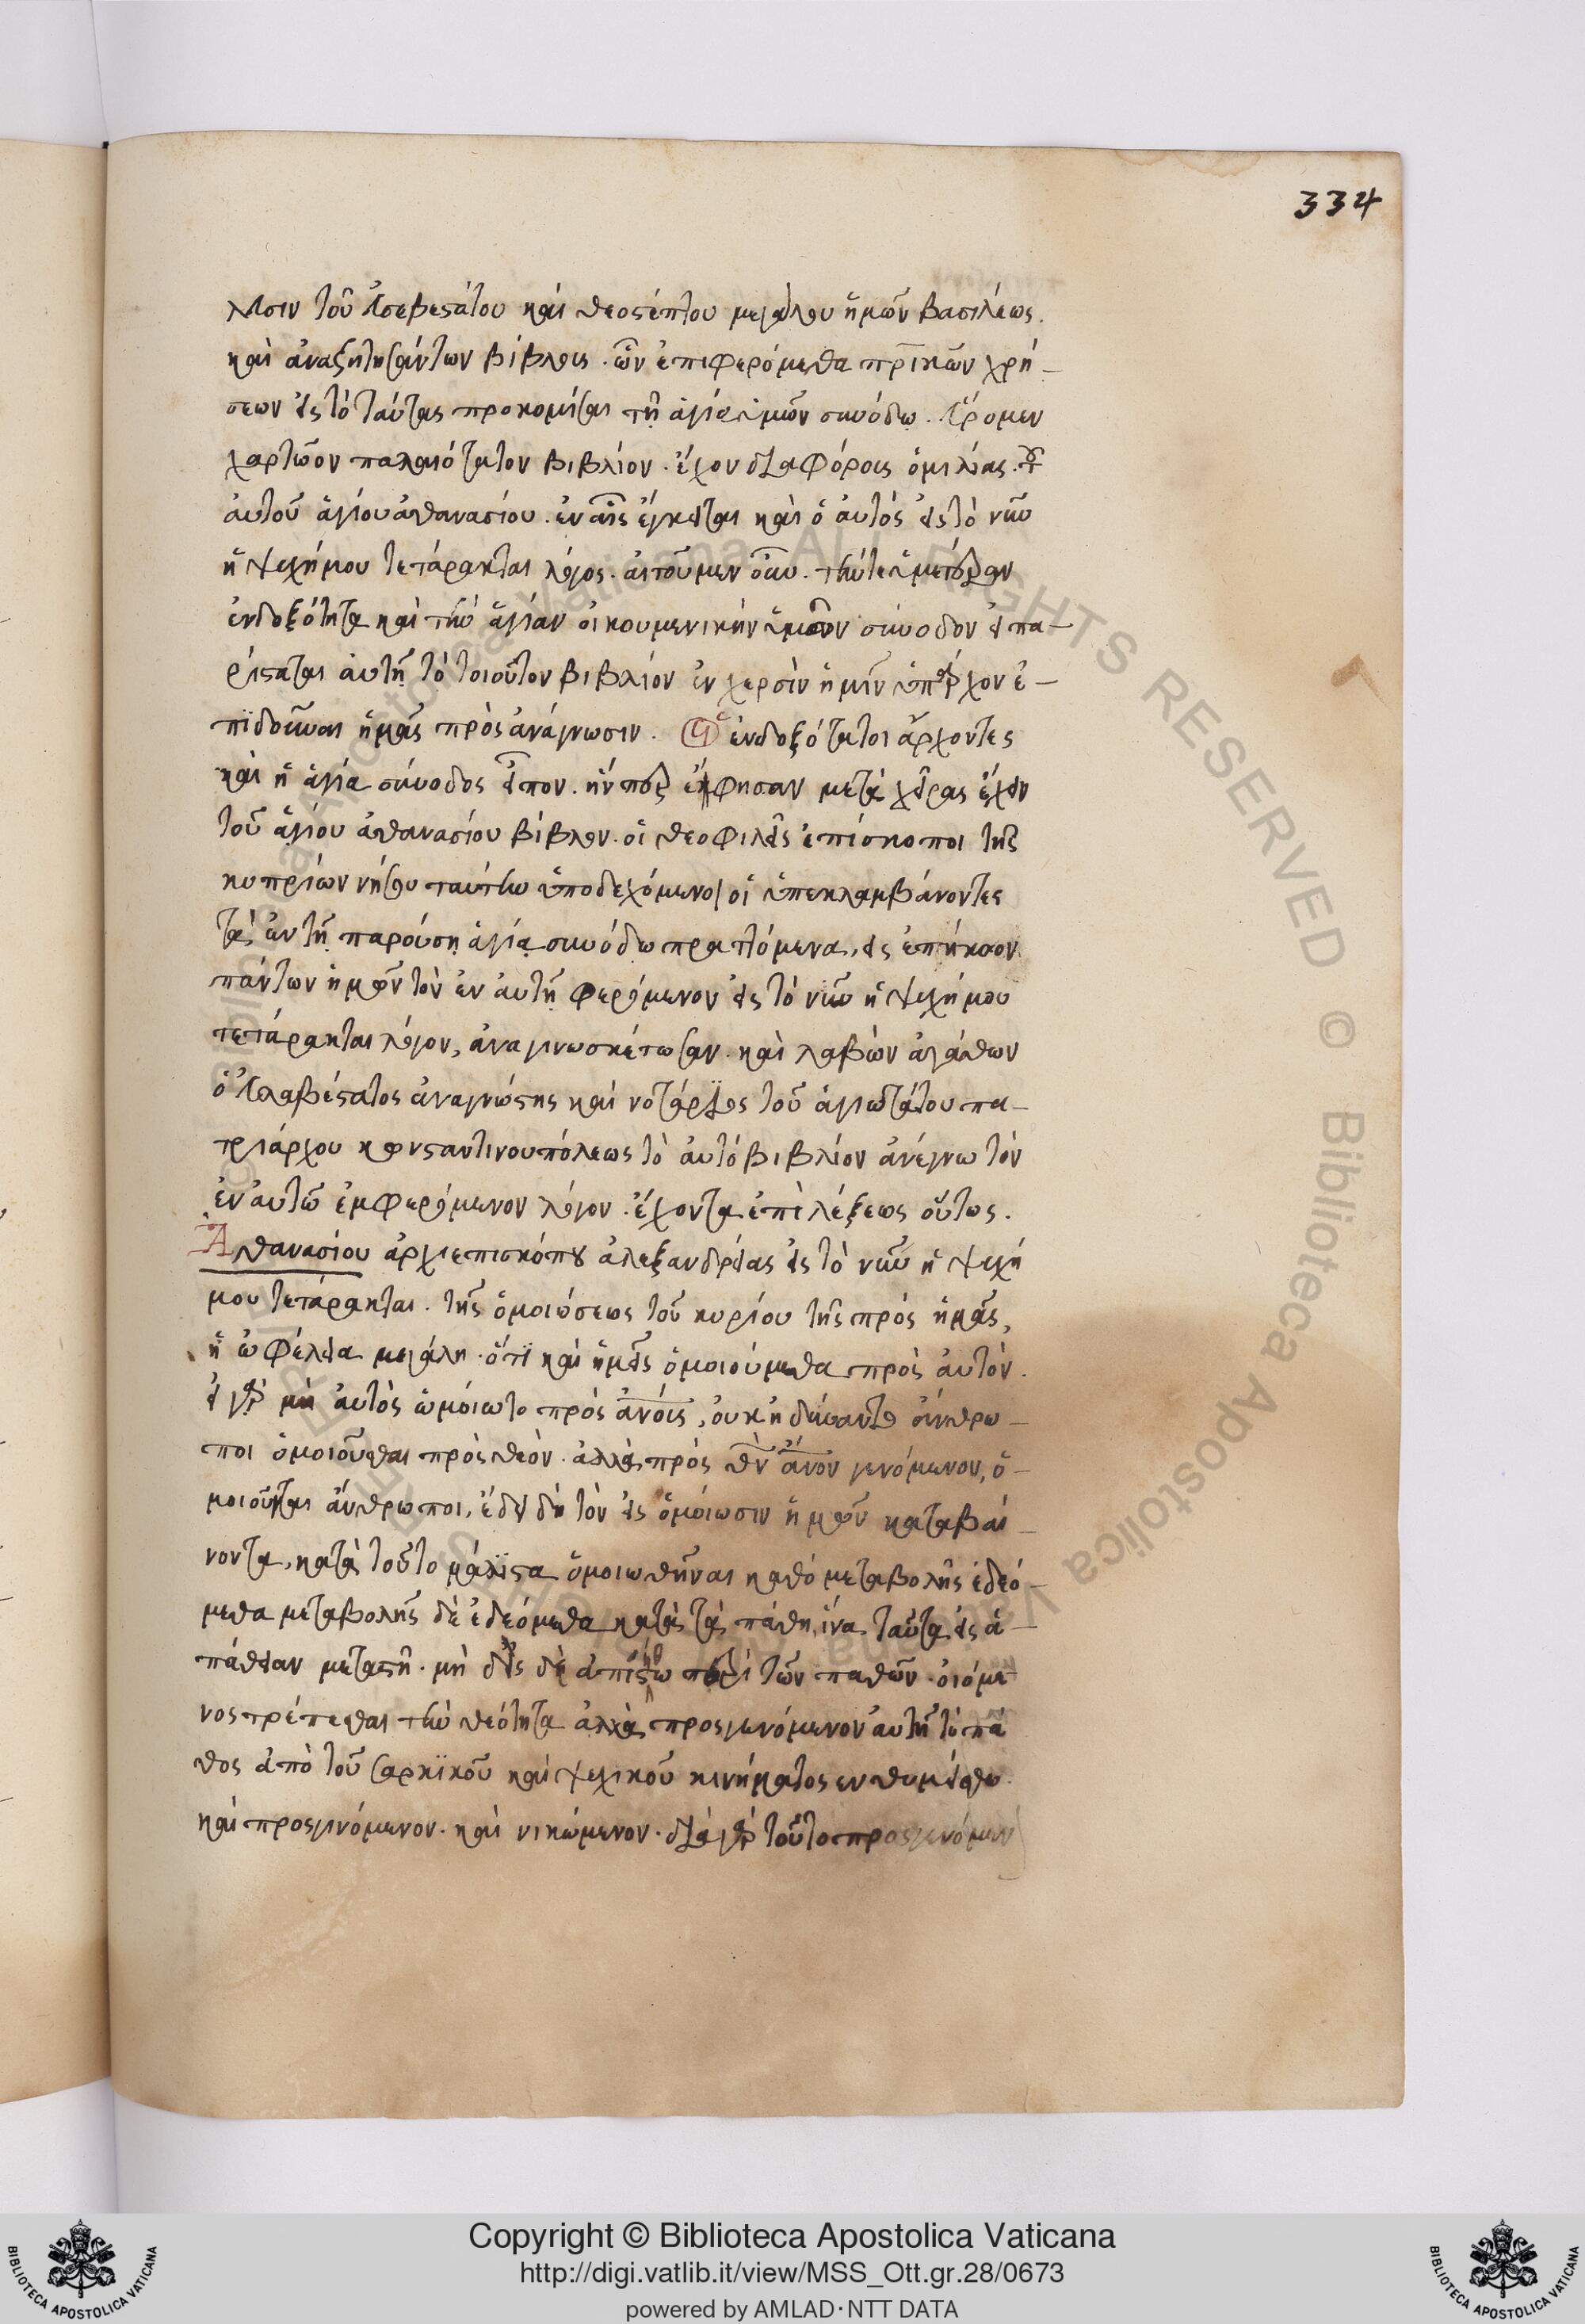 334
λευσιν τοῦ εὐσεβεστάτου καὶ θεοστέπτου μεγάλου ἡμῶν βασιλέως.
καὶ ἀναζητησάντων βίβλους. ὧν ἐπιφερόμεθα πρ̅ικῶν χρή-
σεων εἰς τὸ ταύτας προκομίσαι τῇ ἁγίᾳ ὑμῶν συνόδῳ. εὕρομεν
χαρτῶον παλαιότατον βιβλίον. ἔχον διαφόρους ὁμιλίας. τοῦ
αὐτοῦ ἁγίου ἀθανασίου. ἐν αἷς ἔγκειται καὶ ὁ αὐτὸς εἰς τὸ νῦν
ἡ ψυχή μου τετάρακται λόγος. αἰτοῦμεν οὖν. τήν τε ὑμετέραν
ἐνδοξότητα καὶ τὴν ἁγίαν οἰκουμενικὴν ὑμῶν σύνοδον εἰ πα-
ρίσταται αὐτῇ τὸ τοιοῦτον βιβλίον ἐν χερσὶν ἡμῖν ὑπάρχον ἐ-
πιδοῦναι ἡμᾶς πρὸς ἀνάγνωσιν. Οἱ ἐνδοξότατοι ἄρχοντες
καὶ ἡ ἁγία σύνοδος εἶπον. ἥν περ ἔφησαν μετὰ χεῖρας ἔχειν
τοῦ ἁγίου ἀθανασίου βίβλον. οἱ θεοφιλεῖς ἐπίσκοποι τῆς
κυπρίων νήσου ταύτην ὑποδεχόμενοι οἱ ὑπεκλαμβάνοντες
τὰ ἐν τῇ παρούσῃ ἁγίᾳ συνόδῳ πραττόμενα, εἰς ἐπήκοον
πάντων ἡμῶν τὸν ἐν αὐτῇ φερόμενον εἰς τὸ νῦν ἡ ψυχή μου
τετάρακται λόγον, ἀναγινωσκέτωσαν. καὶ λαβὼν ἀγάθων
ὁ εὐλαβέστατος ἀναγνώστης καὶ νοτάριος τοῦ ἁγιωτάτου πα-
τριάρχου κωνσταντινουπόλεως τὸ αὐτὸ βιβλίον ἀνέγνω τὸν
ἐν αὐτῷ ἐμφερόμενον λόγον. ἔχοντα ἐπὶ λέξεως οὕτως.
Ἀθανασίου ἀρχιεπισκόπου ἀλεξανδρείας εἰς τὸ νῦν ἡ ψυχή
μου τετάρακται. τῆς ὁμοιώσεως τοῦ κυρίου τῆς πρὸς ἡμᾶς,
ἡ ὠφέλεια μεγάλη. ὅτι καὶ ἡμεῖς ὁμοιούμεθα πρὸς αὐτόν.
εἰ γὰρ μὴ αὐτὸς ὡμοίωτο πρὸς ἀν̅οις, οὐκ ἠδύναντο ἄνθρω-
ποι ὁμοιοῦσθαι πρὸς θεόν. ἀλλὰ πρὸς θ̅ν ἄν̅ον γενόμενον, ὁ-
μοιοῦνται ἄνθρωποι, ἔδει δὴ τὸν εἰς ὁμοίωσιν ἡμῶν καταβαί-
νοντα, κατὰ τοῦτο μάλιστα ὁμοιωθῆναι καθὸ μεταβολῆς ἐδεό-
μεθα μεταβολῆς δὲ ἐδεόμεθα κατὰ τὰ πάθη, ἵνα ταῦτα εἰς ἀ-
πάθειαν μεταστῇ. μὴ δεὶς δὲ ἀπιστείτω περὶ τῶν παθῶν. οἰόμε
νος τρέπεσθαι τὴν θεότητα ἀλλὰ προσγενόμενον αὐτῇ τὸ πά
θος ἀπὸ τοῦ σαρκικοῦ καὶ ψυχικοῦ κινήματος ἐνθυμείσθω
καὶ προσγινόμενον. καὶ νικώμενον. διὰ γὰρ τοῦτο προσγενόμεν
Copyright © Biblioteca Apostolica Vaticana
http://digi.vatlib.it/view/MSS_Ott.gr.28/0673
powered by AMLAD·NTT DATA
BIBLIOTECA APOSTOLICA VATICANA
BIBLIOTECA APOSTOLICA VATICANA